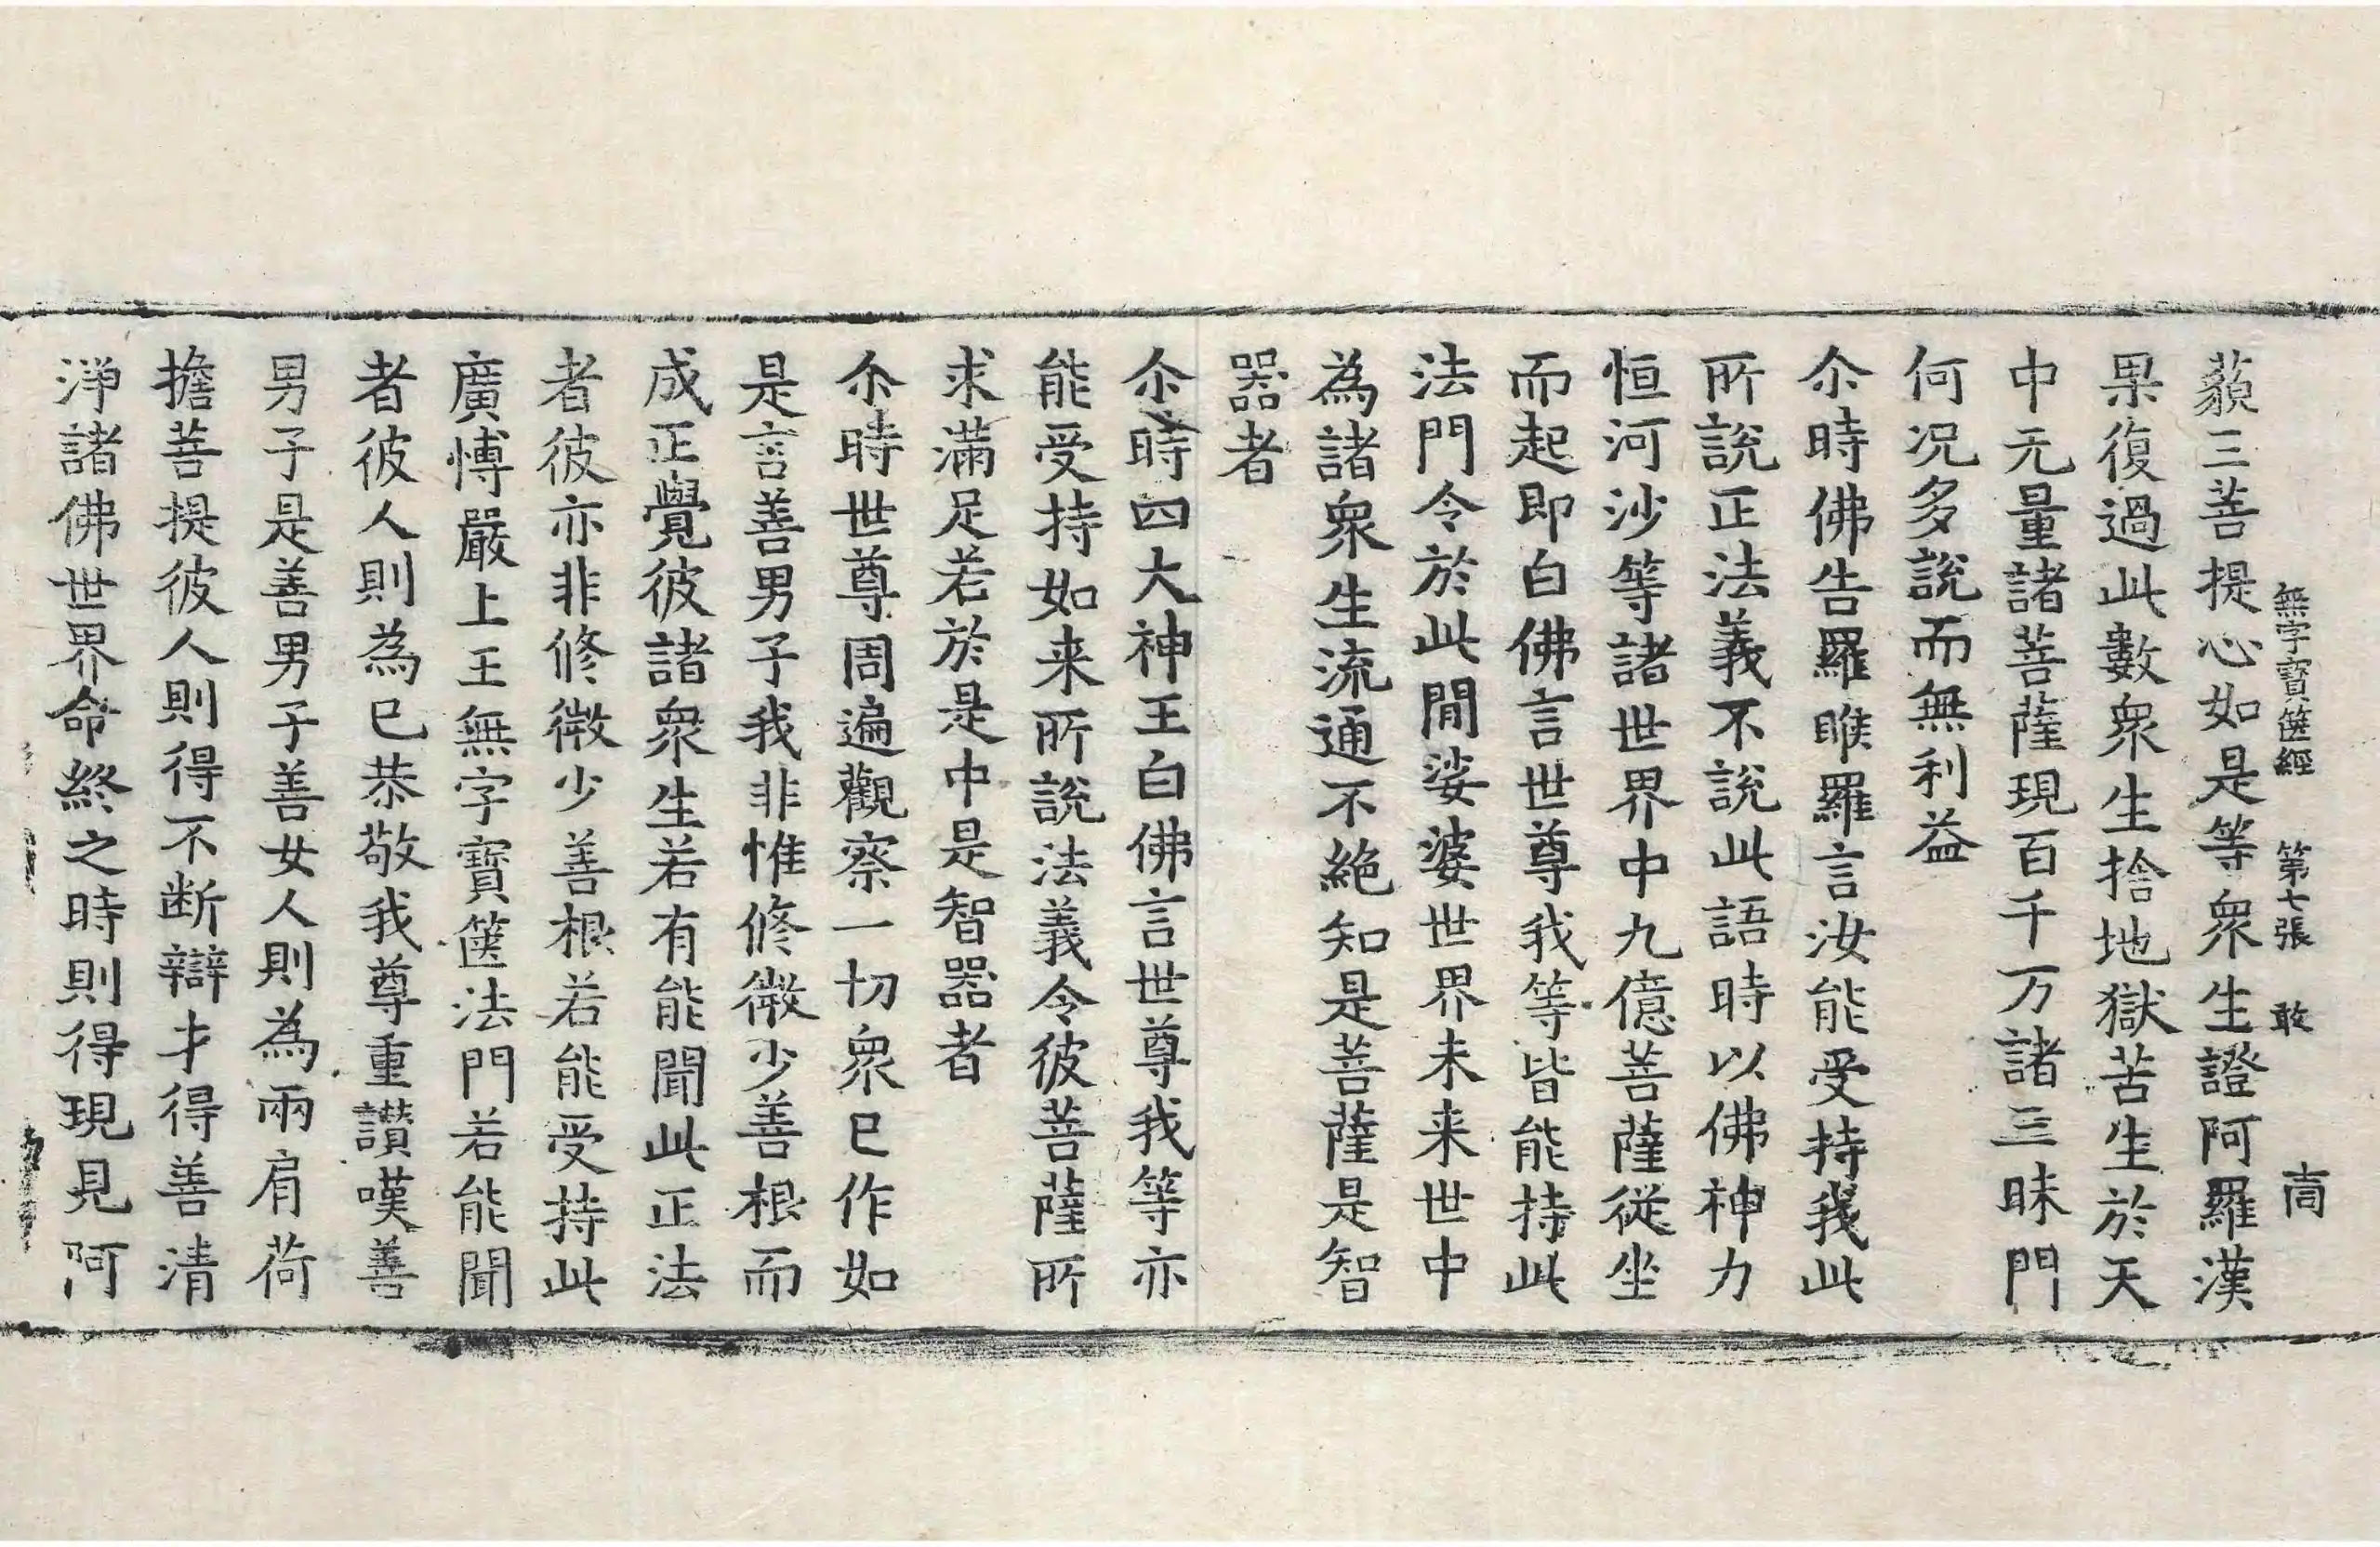 無字寶篋經 第七張 敢 高
藐三菩提心如是等衆生證阿羅漢
果復過此數衆生捨地獄苦生於天
中无量諸菩薩現百千万諸三昧門
何况多說而無利益
尒時佛告羅睺羅言汝能受持我此
所說正法義不說此語時以佛神力
恒河沙等諸世界中九億菩薩従坐
而起即白佛言世尊我等皆能持此
法門令於此閒娑婆世界未来世中
為諸衆生流通不絕知是菩薩是智
器者
尒時四大神王白佛言世尊我等亦
能受持如来所說法義令彼菩薩所
求滿足若於是中是智器者
尒時世尊周遍觀察一切衆已作如
是言善男子我非惟修微少善根而
成正覺彼諸衆生若有能聞此正法
者彼亦非修微少善根若能受持此
廣愽嚴上王無字寶篋法門若能聞
者彼人則為已恭敬我尊重讃嘆善
男子是善男子善女人則為兩肩荷
擔菩提彼人則得不断辯才得善清
淨諸佛世界命終之時則得現見阿